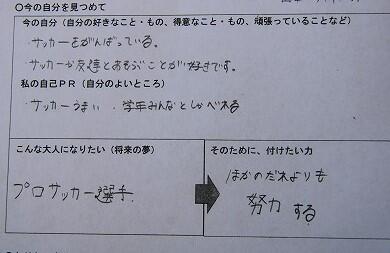 〇今の自分を見つめて
今の自分（自分の好きなこと・もの、得意なこと・もの、頑張っていることなど）
・サッカーをがんばっている。
・サッカーか友達とあそぶことが好きです。
私の自己PR（自分のよいところ）
・サッカーうまい 学年みんなとしゃべれる
こんな大人になりたい（将来の夢）
プロサッカー選手
そのために、付けたい力
ほかのだれよりも
努力する